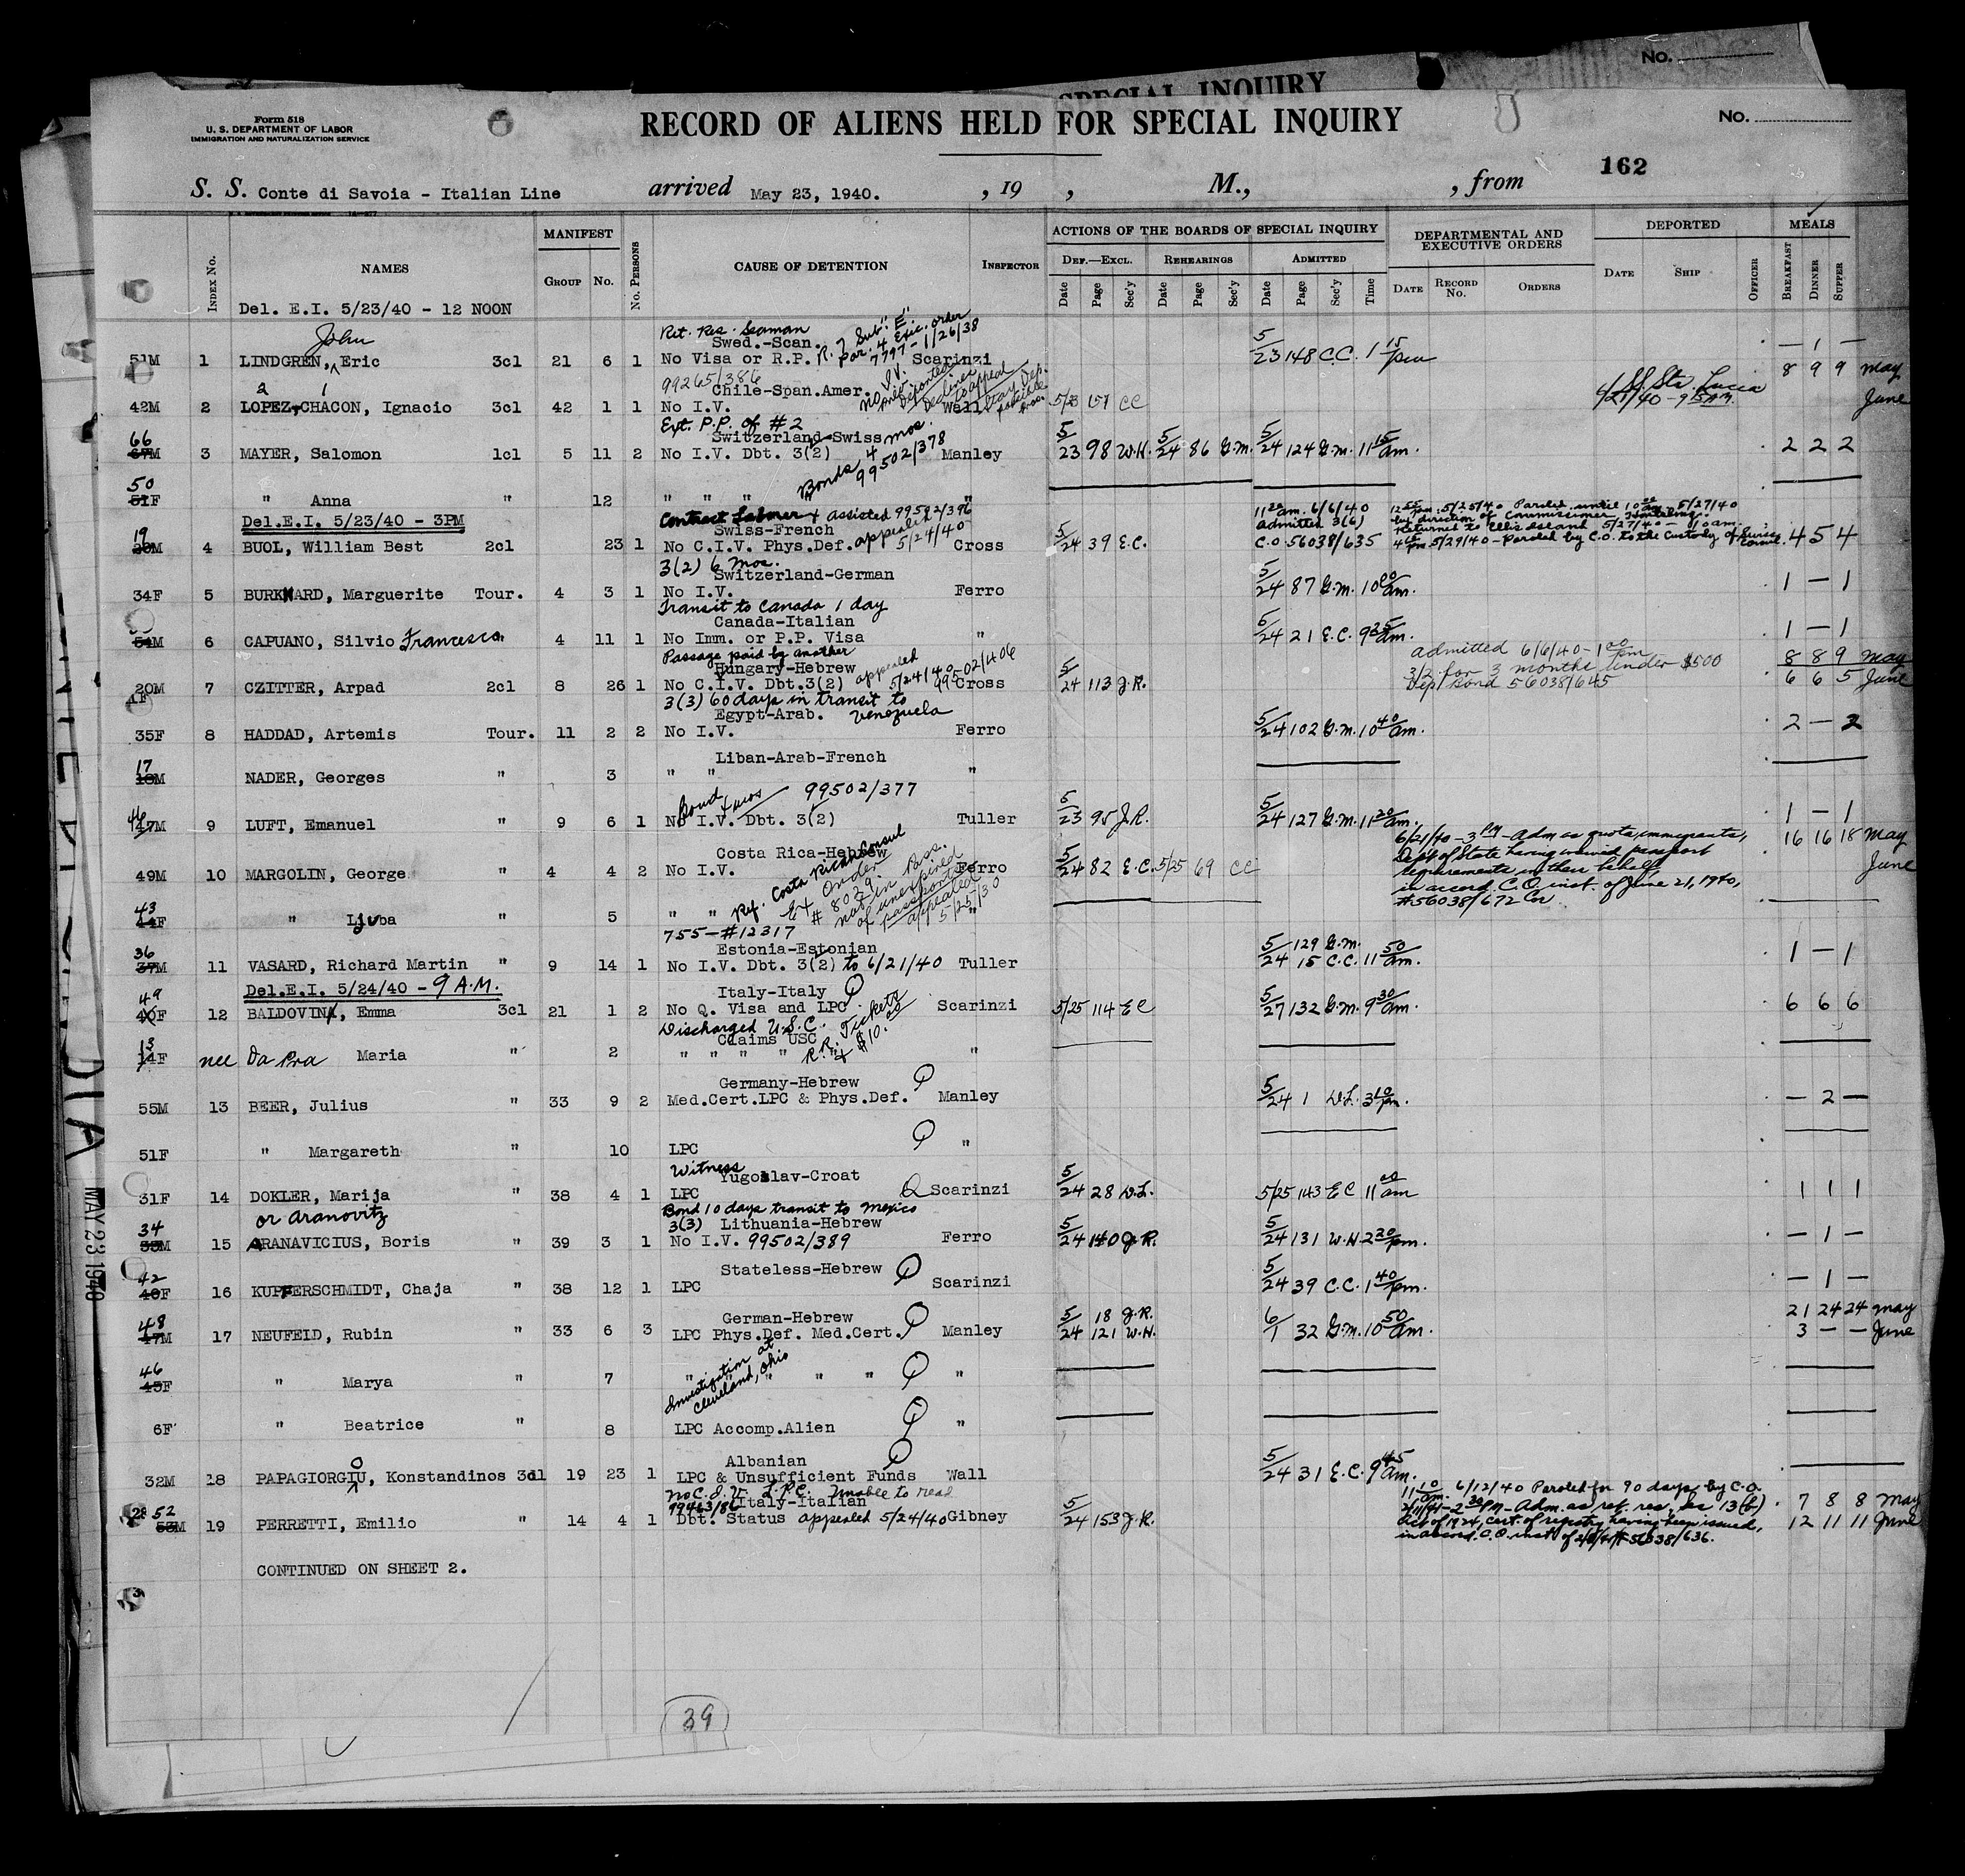 SPECIAL INQUIRY
No.
Form 518
U. S. DEPARTMENT OF LABOR
IMMIGRATION AND NATURALIZATION SERVICE
RECORD OF ALIENS HELD FOR SPECIAL INQUIRY
No.
162
S. S. Conte di Savoia - Italian Line arrived May 23, 1940. , 19 , M., , from
MANIFEST ACTIONS OF THE BOARDS OF SPECIAL INQUIRY DEPARTMENTAL AND EXECUTIVE ORDERS DEPORTED MEALS
Index No. NAMES Group No. No. Persons CAUSE OF DETENTION Inspector Def.—Excl. Rehearings Admitted Date Record No. Orders Date Ship Officer Breakfast Dinner Supper
Date Page Sec'y Date Page Sec'y Date Page Sec'y Time
Del. E.I. 5/23/40 - 12 NOON
John Ret. Res. Seaman
Swed.-Scan. R. 7 Sub "E" par. 4 Exec. order 7797 - 1/26/38
51M 1 LINDGREN, Eric 3cl 21 6 1 No Visa or R.P. Scarinzi 5/23 148 C.C. 1 15 pm — 1 —
99265/386 8 9 9 May
2 1 Chile-Span.Amer.
42M 2 LOPEZ-CHACON, Ignacio 3cl 42 1 1 No I.V. Wall 5/23 151 CC SS. Sta. Lucca June
Ext. P.P. of #2
66 Switzerland-Swiss 4 mos.
67M 3 MAYER, Salomon 1cl 5 11 2 No I.V. Dbt. 3(2) Manley 5/23 98 W.H. 5/24 86 G.M. 5/24 124 G.M. 11 15 am. 2 2 2
Bonds 99502/378
50
51F " Anna " 12 " " " "
Del.E.I. 5/23/40 - 3PM
Contract Laborer & assisted 99502/396
19 Swiss-French appealed 5/24/40
20M 4 BUOL, William Best 2cl 23 1 No C.I.V. Phys.Def. Cross 5/24 39 E.C. 4 5 4
11 20 am. 6/6/40 admitted 3(6) C.O 56038/635
12 55 pm. 5/25/40 Paroled until 10 00 am 5/27/40
by direction of Commissioner Houteling.
Returned to Ellis Island 5/27/40 - 10 am.
5/29/40 - Paroled by C.O. to the Custody of Swiss Consul.
3(2) 6 mos.
Switzerland-German
34F 5 BURKHARD, Marguerite Tour. 4 3 1 No I.V. Ferro 5/24 87 G.M. 10 00 am. 1 — 1
Transit to Canada 1 day
Canada-Italian
54M 6 CAPUANO, Silvio Francesco " 4 11 1 No Imm. or P.P. Visa " 5/24 21 E.C. 9 25 am. 1 — 1
Passage paid by another
Hungary-Hebrew appealed 5/24/40 99502/406
20M 7 CZITTER, Arpad 2cl 8 26 1 No C.I.V. Dbt.3(2) Cross 5/24 113 J.R.
admitted 6/6/40 - 1 00 pm 8 8 9 May
3/2 for 3 months under $500 6 6 5 June
Dep. Bond 56038/645
1F 3(3) 60 days in transit to Venezuela
Egypt-Arab.
35F 8 HADDAD, Artemis Tour. 11 2 2 No I.V. Ferro 5/24 102 G.M. 10 40 am. 2 — 2
17 Liban-Arab-French
18M NADER, Georges " 3 " " "
Bond 4 mos 99502/377
46
47M 9 LUFT, Emanuel " 9 6 1 No I.V. Dbt. 3(2) Tuller 5/23 95 J.R. 5/24 127 G.M. 11 20 am. 1 — 1
Costa Rica-Hebrew
49M 10 MARGOLIN, George " 4 4 2 No I.V. Ferro 5/24 82 E.C. 5/25 69 CC 16 16 18 May
June
6/21/40 - 3 PM - Adm as quota immigrants,
Dept of State having waived passport
requirements in their behalf,
in accord. C.O. inst. of June 21, 1940,
#56038/672 Cor
Ref. Costa Rican Consul Ex Order #8029. not in Pass. of unexpired passports appealed
43
44F " Ljuba " 5 " " "
755-#12317
36 Estonia-Estonian
37M 11 VASARD, Richard Martin " 9 14 1 No I.V. Dbt. 3(2) to 6/21/40 Tuller 5/24 129 G.M. 15 C.C. 11 50 am. 1 — 1
Del.E.I. 5/24/40 - 9 A.M.
49 Italy-Italy
40F 12 BALDOVINI, Emma 3cl 21 1 2 No Q. Visa and LPC Scarinzi 5/25 114 EC 5/27 132 G.M. 9 30 am. 6 6 6
Discharged U.S.C. R.R. Tickets & $10.00
13 Claims USC
14F nee Da Pra Maria " 2 " " " " " "
Germany-Hebrew
55M 13 BEER, Julius " 33 9 2 Med.Cert.LPC & Phys.Def. Manley 5/24 1 D.L. 3 10 pm. — 2 —
51F " Margareth " 10 LPC "
Witness
Yugoslav-Croat
31F 14 DOKLER, Marija " 38 4 1 LPC Scarinzi 5/24 28 D.L. 5/25 143 EC 11 00 am 1 1 1
or Aranovitz Bond 10 days transit to Mexico
34 3(3) Lithuania-Hebrew
35M 15 ARANAVICIUS, Boris " 39 3 1 No I.V. 99502/389 Ferro 5/24 140 J.R. 5/24 131 W.H. 2 20 pm. — 1 —
42 Stateless-Hebrew
40F 16 KUPFERSCHMIDT, Chaja " 38 12 1 LPC Scarinzi 5/24 39 C.C. 1 40 pm. — 1 —
48 German-Hebrew 21 24 24 May
47M 17 NEUFELD, Rubin " 33 6 3 LPC Phys.Def. Med.Cert. Manley 5/24 18 J.R. 121 W.H. 6/1 32 G.M. 10 50 am. 3 — — June
Investigation at Cleveland, Ohio
46
45F " Marya " 7 " " " " " "
6F " Beatrice " 8 LPC Accomp.Alien "
Albanian
32M 18 PAPAGIORGIU, Konstandinos 3cl 19 23 1 LPC & Unsufficient Funds Wall 5/24 31 E.C. 9 45 am.
No C.I.V. L.P.C. Unable to read
99463/86 Italy-Italian
52
53M 19 PERRETTI, Emilio " 14 4 1 Dbt. Status appealed 5/24/40 Gibney 5/24 153 J.R. 7 8 8 May
12 11 11 June
11 10 am. 6/12/40 Paroled for 90 days by C.O.
2 30 PM - Adm. as ret. res. sec 13(b)
Act of 1924, cert. of registry having been issued,
in accord. C.O. inst. of #56038/636.
CONTINUED ON SHEET 2.
39
MAY 23 1940